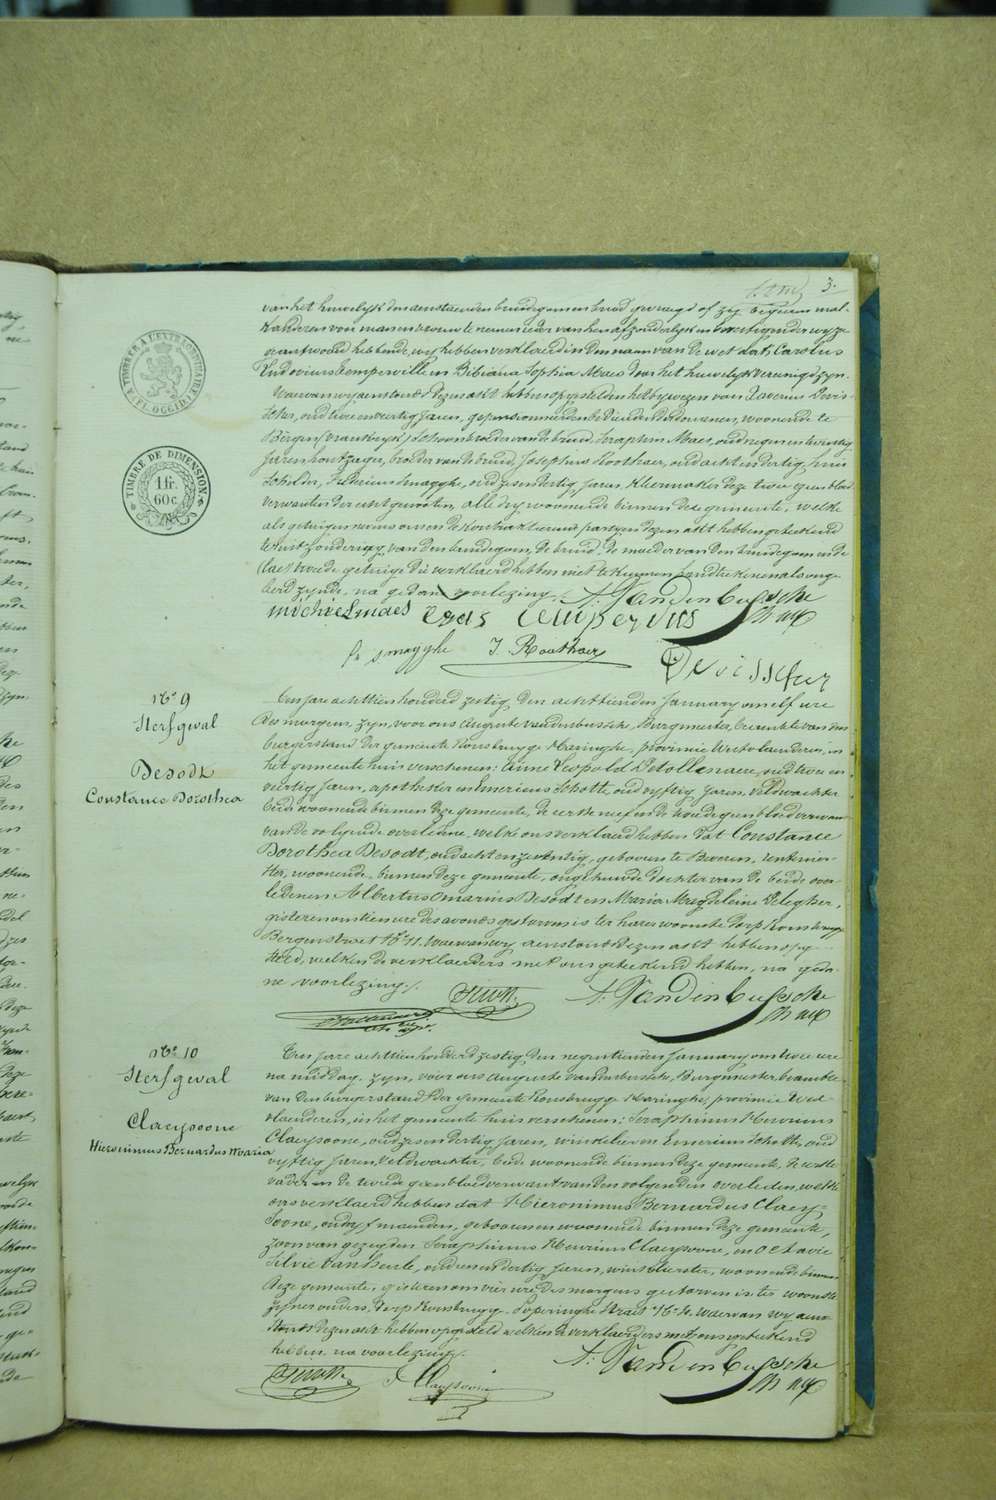 3.
van het huwelyk den aenstaenden bruidegom en bruid gevraegd of zy begeeren mal-
kanderen voor man en vrouw te nemen ieder van hen afzonderlyk en bevestigender wyze
geantwoord hebbende, wy hebben verklaerd in den naem van de wet dat Carolus
Ludovicus Cempervil en Bibiana Sophia Maes door het huwelyk vereenigd zyn.
Waervan wy aenstonds dezen akt hebben opgesteld in het bywezen van Devis-
scher, oud twee en veertig jaren, gepensionneerden bedienden der douanen, woonende te
Bergen (Frankryk) schoonbroeder van de bruid, Seraphin Maes, oud negen en twintig
jaren, houtzager, broeder van de bruid, Josephus Roothaer, oud acht en dertig jaren
Fredericus Smagghe, oud zes en dertig jaren, kleermaker deze twee geen bloed
verwanten der echtgenooten, alle dry woonende binnen deze gemeente, welke
als getuigen nevens ons en de kontracterende partyen dezen akt hebben geteekend
te uitzondering van den bruidegom, de bruid, de moeder van den bruidegom en de
twede getuige die verklaerd hebben niet te kunnen handteekenen als onge-
leerd zynde, na gedaen voorlezing. A. Vandenbussche
michiel maes
fr smagghe J. Roothaer Devisscher
TIMBRE A L'EXTRAORDINAIRE
(FL. OCCID.)
TIMBRE DE DIMENSION
1 fr.
60 c.
No 9
Sterfgeval
Desodt
Constance Dorothea
Een jare achttien honderd zestig, den achttienden January om elf ure
des morgens, zyn, voor ons Auguste Vandenbussche, Burgmeester, beambte van den
burgerstand der gemeente Rousbrugge Haringhe, provincie Westvlaenderen, in
het gemeente huis verschenen: Aimé Leopold Detollenaere, oud twee en
veertig jaren, apotheker en Emerinus Schotte, oud vyftig jaren, veldwachter
beide woonende binnen deze gemeente, de eerste neef en de tweede geen bloedverwant
van de volgende overledene, welke ons verklaerd hebben dat Constance
Dorothea Desodt, oud acht en zeventig, geboren te Beveren, rentenier-
ster, woonende binnen deze gemeente, ongehuwde dochter van de beide over-
ledenen Albertus Omarius Desodt en Maria Magdeleine Velegher,
gisteren om tien ure des avonds gestorven is ter harer woonste dorp Rousbrugge
Bergenstraet No 11. Waervan wy aenstonds dezen akt hebben opge-
steld, welken de verklaerders met ons geteekend hebben, na gedae-
ne voorlezing.
A. Vandenbussche
No 10
Sterfgeval
Claeysoone
Hieronimus Bernardus Maria
Een jare achttien honderd zestig, den negentienden January om twee ure
na middag, zyn, voor ons Auguste Vandenbussche, Burgmeester beambte
van den burgerstand der gemeente Rousbrugge Haringhe, provincie West
vlaenderen, in het gemeente huis verschenen: Seraphinus Henricus
Claeysoone, oud zes en dertig jaren, winkelier en Emerinus Schotte, oud
vyftig jaren, veldwachter, beide woonende binnen deze gemeente, de eerste
vader en de tweede geen bloedverwant van den volgenden overleden, welke
ons verklaerd hebben dat Hieronimus Bernardus Claey-
soone, oud vyf maenden, geboren en woonende binnen deze gemeente,
zoon van gezegden Seraphinus Henricus Claeysoone, en Octavie
Silvie Van Heule, oud en dertig jaren, winkelierster, woonende binnen
deze gemeente, gisteren om vier ure des morgens gestorven is ter woonste
zyner ouders, dorp Rousbrugge, Poperinghe straet No 14. Waervan wy aen-
stonds dezen akt hebben opgesteld welken de verklaerders met ons geteekend
hebben, na voorlezing.
A. Vandenbussche
Claeysoone